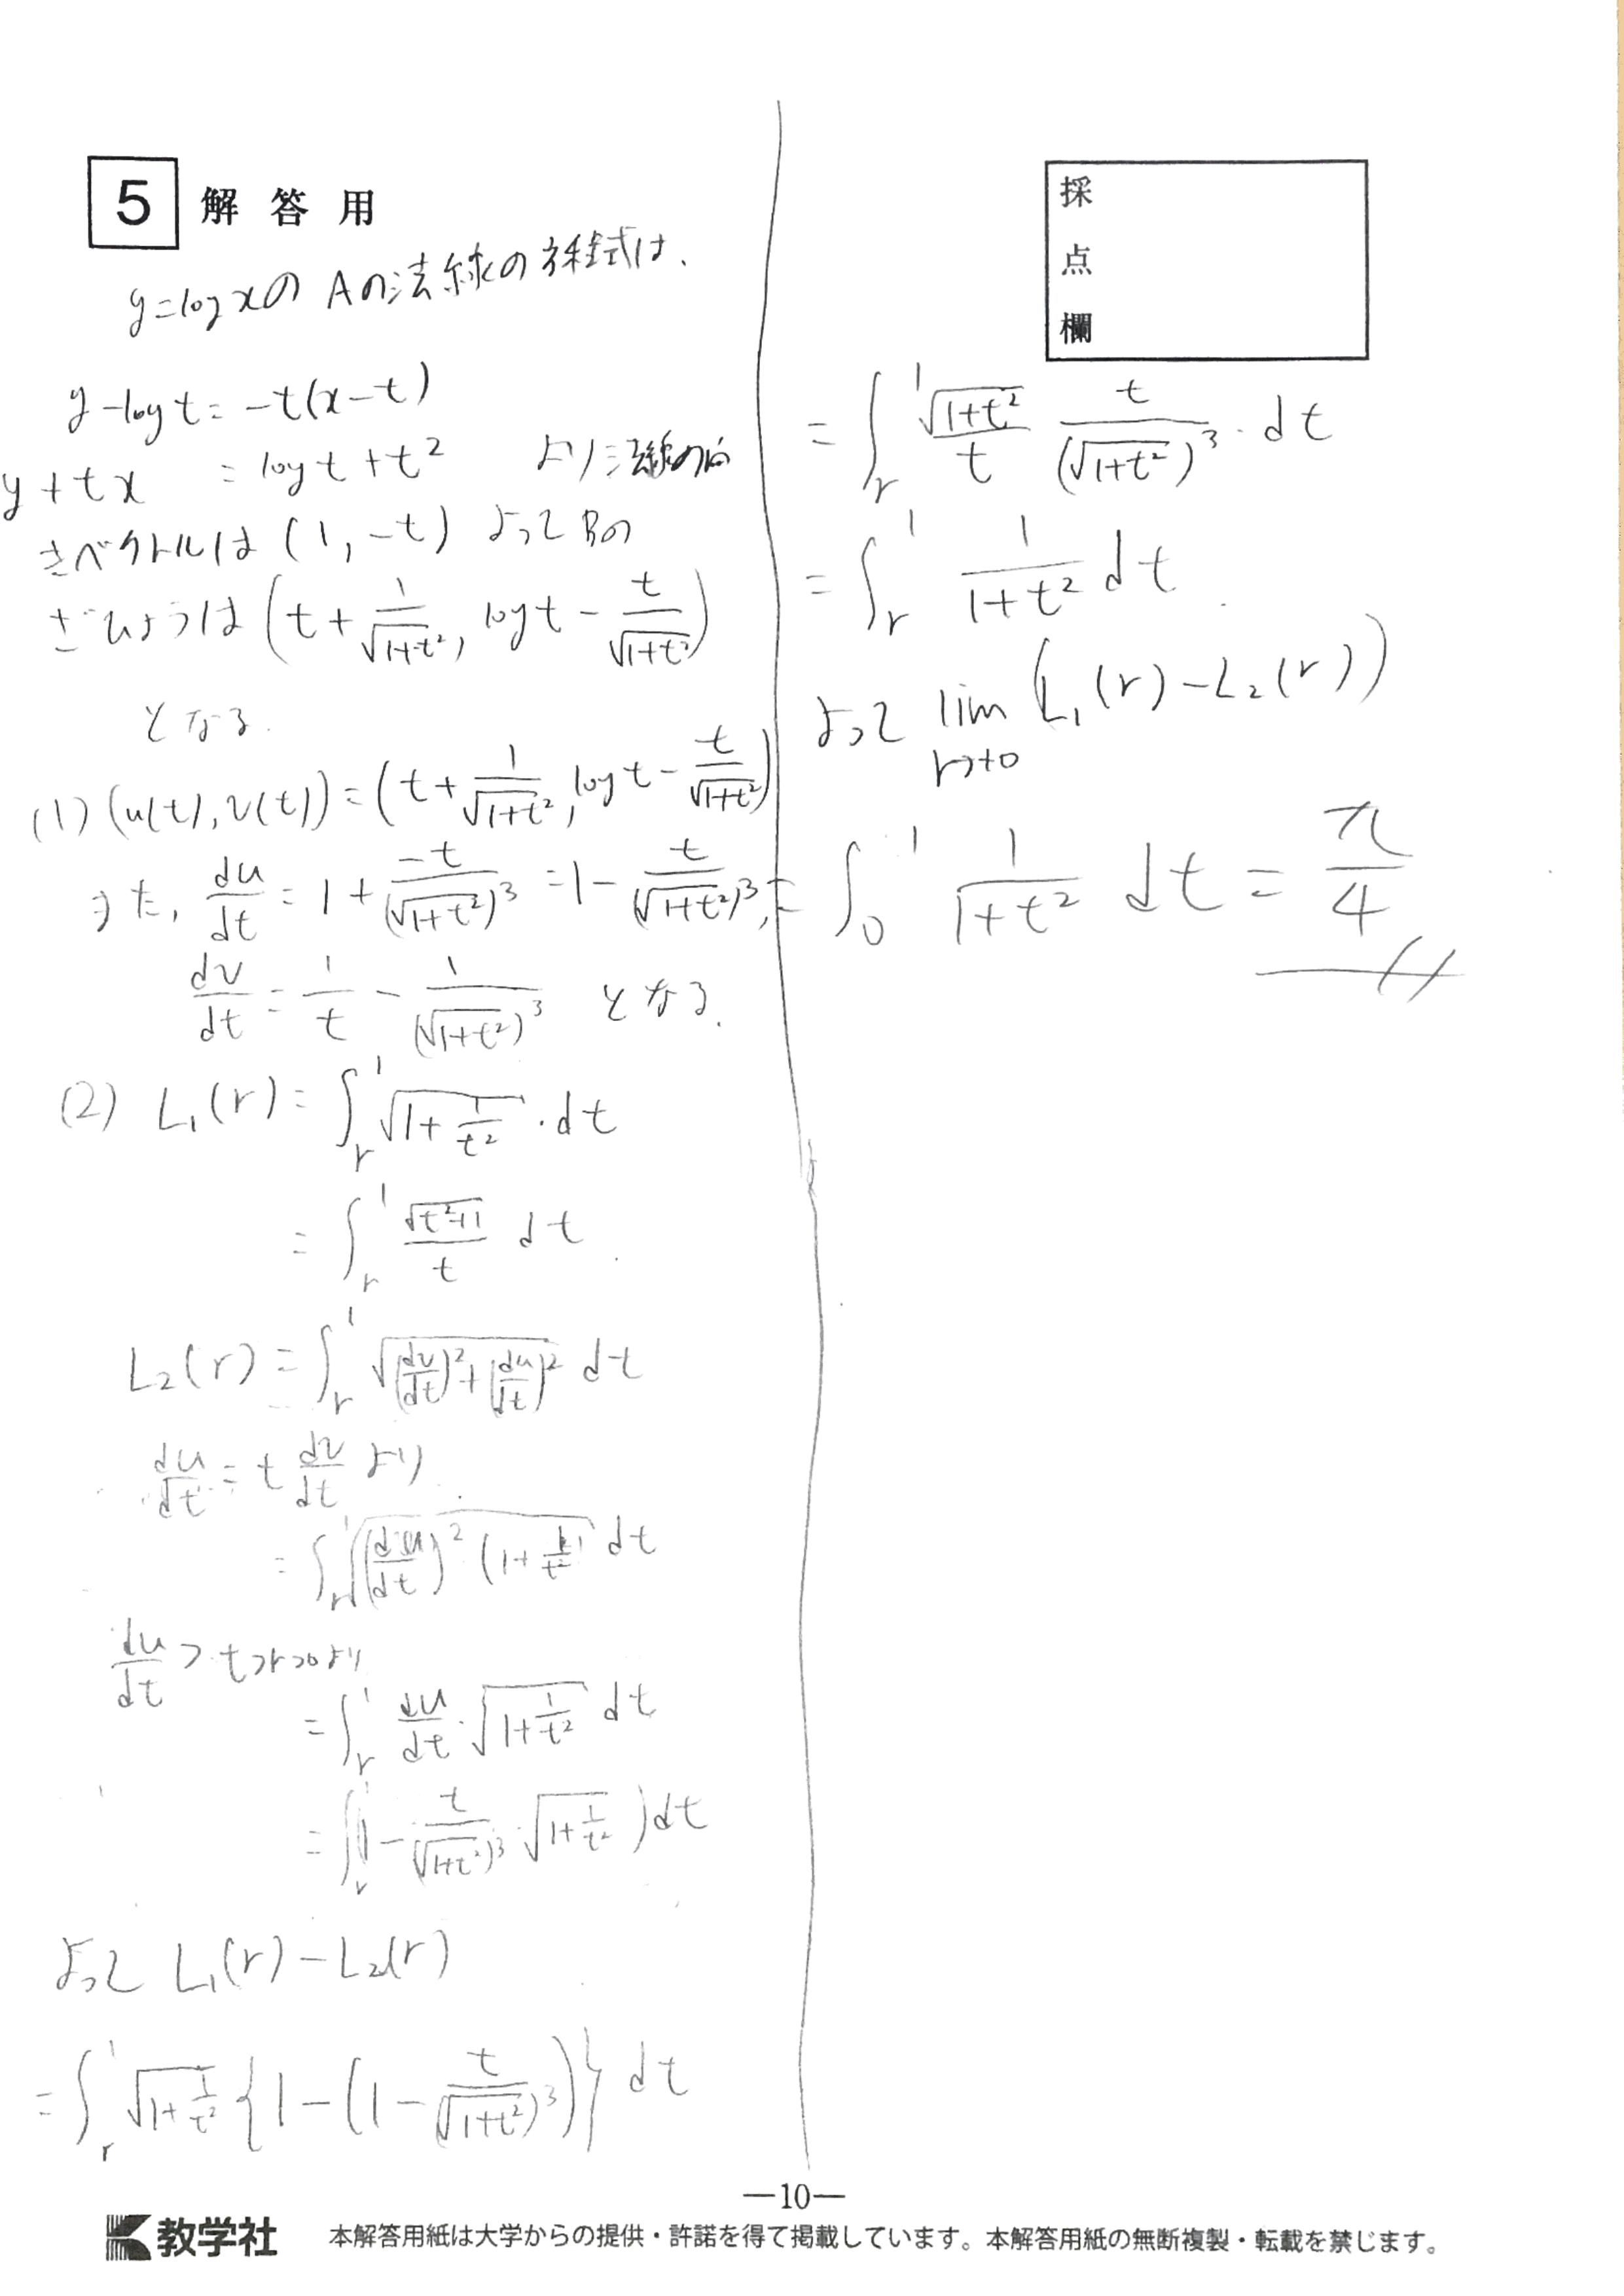 5 解答用
y=logxの Aの法線の方程式は、
y-logt=-t(x-t)
y+tx =logt+t² より法線の向
きベクトルは(1,-t) よってBの
ざひょうは(t+1/√(1+t²), logt-t/√(1+t²))
となる.
(1) (u(t),v(t))=(t+1/√(1+t²), logt-t/√(1+t²))
また, du/dt=1+(-t)/(√(1+t²))³=1-t/(√(1+t²))³,
dv/dt=1/t-1/(√(1+t²))³ となる.
(2) L₁(r)=∫_r^1 √(1+1/t²)・dt
=∫_r^1 √(t²+1)/t dt
L₂(r)=∫_r^1 √((dv/dt)²+(du/dt)²) dt
du/dt=t dv/dt より
=∫_r^1 √((du/dt)²(1+1/t²)) dt
du/dt> t>r>0より
=∫_r^1 du/dt・√(1+1/t²) dt
=∫_r^1(1-t/(√(1+t²))³・√(1+1/t²))dt
よって L₁(r)-L₂(r)
=∫_r^1 √(1+1/t²){1-(1-t/(√(1+t²))³)}dt
採点欄
=∫_r^1 √(1+t²)/t t/(√(1+t²))³・dt
=∫_r^1 1/(1+t²) dt.
よって lim_{r→+0}(L₁(r)-L₂(r))
=∫_0^1 1/(1+t²) dt=π/4
—10—
教学社 本解答用紙は大学からの提供・許諾を得て掲載しています。本解答用紙の無断複製・転載を禁じます。